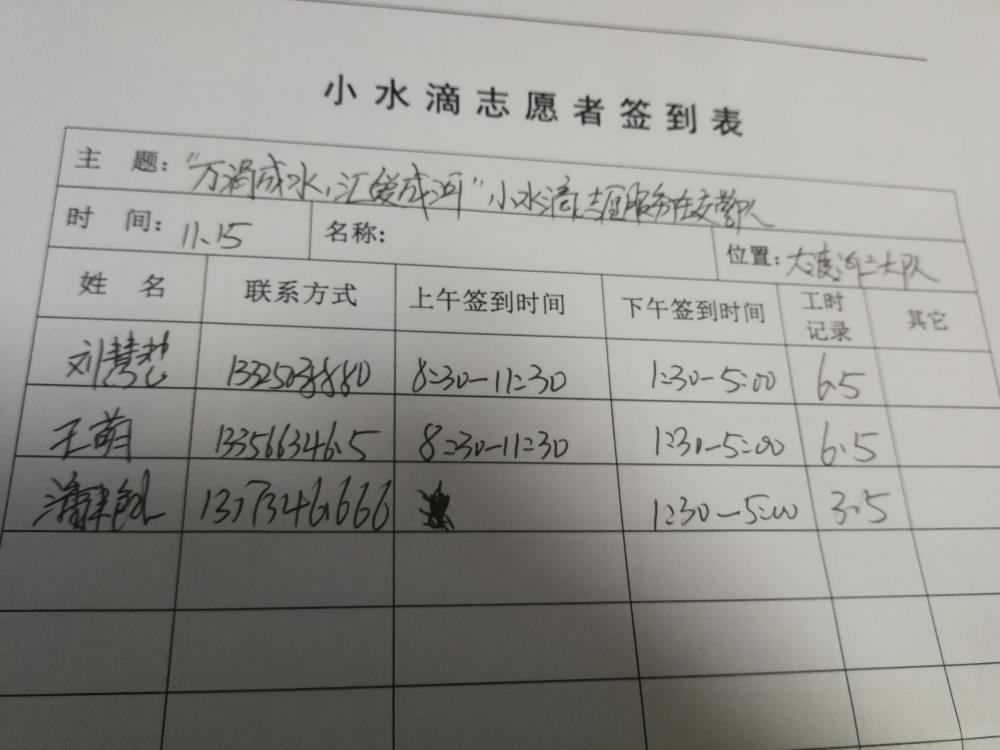 小水滴志愿者签到表
主 题：“万涓成水，汇爱成河”小水滴志愿服务在交警队
时 间：11.15 名称： 位置：大渡河二大队
姓 名 联系方式 上午签到时间 下午签到时间 工时记录 其它
刘慧 8:30-11:30 1:30-5:00 6.5
王萌 8:30-11:30 1:30-5:00 6.5
1:30-5:00 3.5